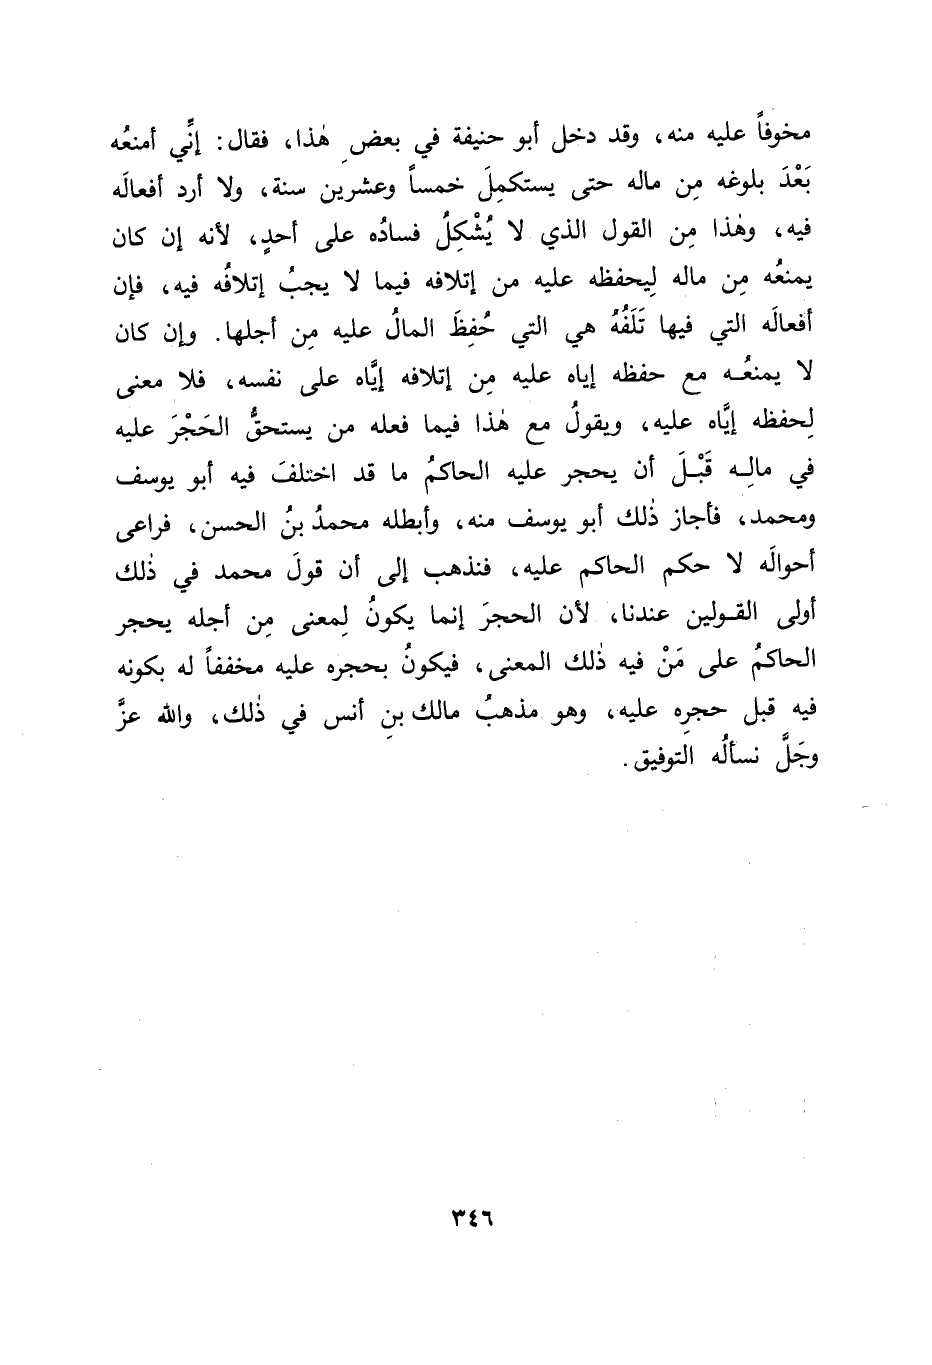 مخوفاً عليه منه، وقد دخل أبو حنيفة في بعضِ هٰذا، فقال: إنِّي أمنعُه
بَعْدَ بلوغه مِن ماله حتى يستكمِلَ خمساً وعشرين سنة، ولا أرد أفعالَه
فيه، وهٰذا مِن القول الذي لا يُشْكِلُ فسادُه على أحدٍ، لأنه إن كان
يمنعُه مِن ماله لِيحفظه عليه من إتلافه فيما لا يجبُ إتلافُه فيه، فإن
أفعالَه التي فيها تَلَفُهُ هي التي حُفِظَ المالُ عليه مِن أجلها. وإن كان
لا يمنعُـه مع حفظه إياه عليه مِن إتلافه إيَّاه على نفسه، فلا معنى
لِحفظه إيَّاه عليه، ويقولُ مع هٰذا فيما فعله من يستحقُّ الحَجْرَ عليه
في مالِـه قَبْـلَ أن يحجر عليه الحاكمُ ما قد اختلفَ فيه أبو يوسف
ومحمد، فأجاز ذٰلك أبو يوسف منه، وأبطله محمدُ بنُ الحسن، فراعى
أحوالَه لا حكم الحاكم عليه، فنذهب إلى أن قولَ محمد في ذٰلك
أولى القـولين عندنا، لأن الحجرَ إنما يكونُ لِمعنى مِن أجله يحجر
الحاكمُ على مَنْ فيه ذٰلك المعنى، فيكونُ بحجره عليه مخففاً له بكونه
فيه قبل حجرِه عليه، وهو مذهبُ مالك بنِ أنس في ذٰلك، والله عزَّ
وجَلَّ نسألُه التوفيق.
٣٤٦